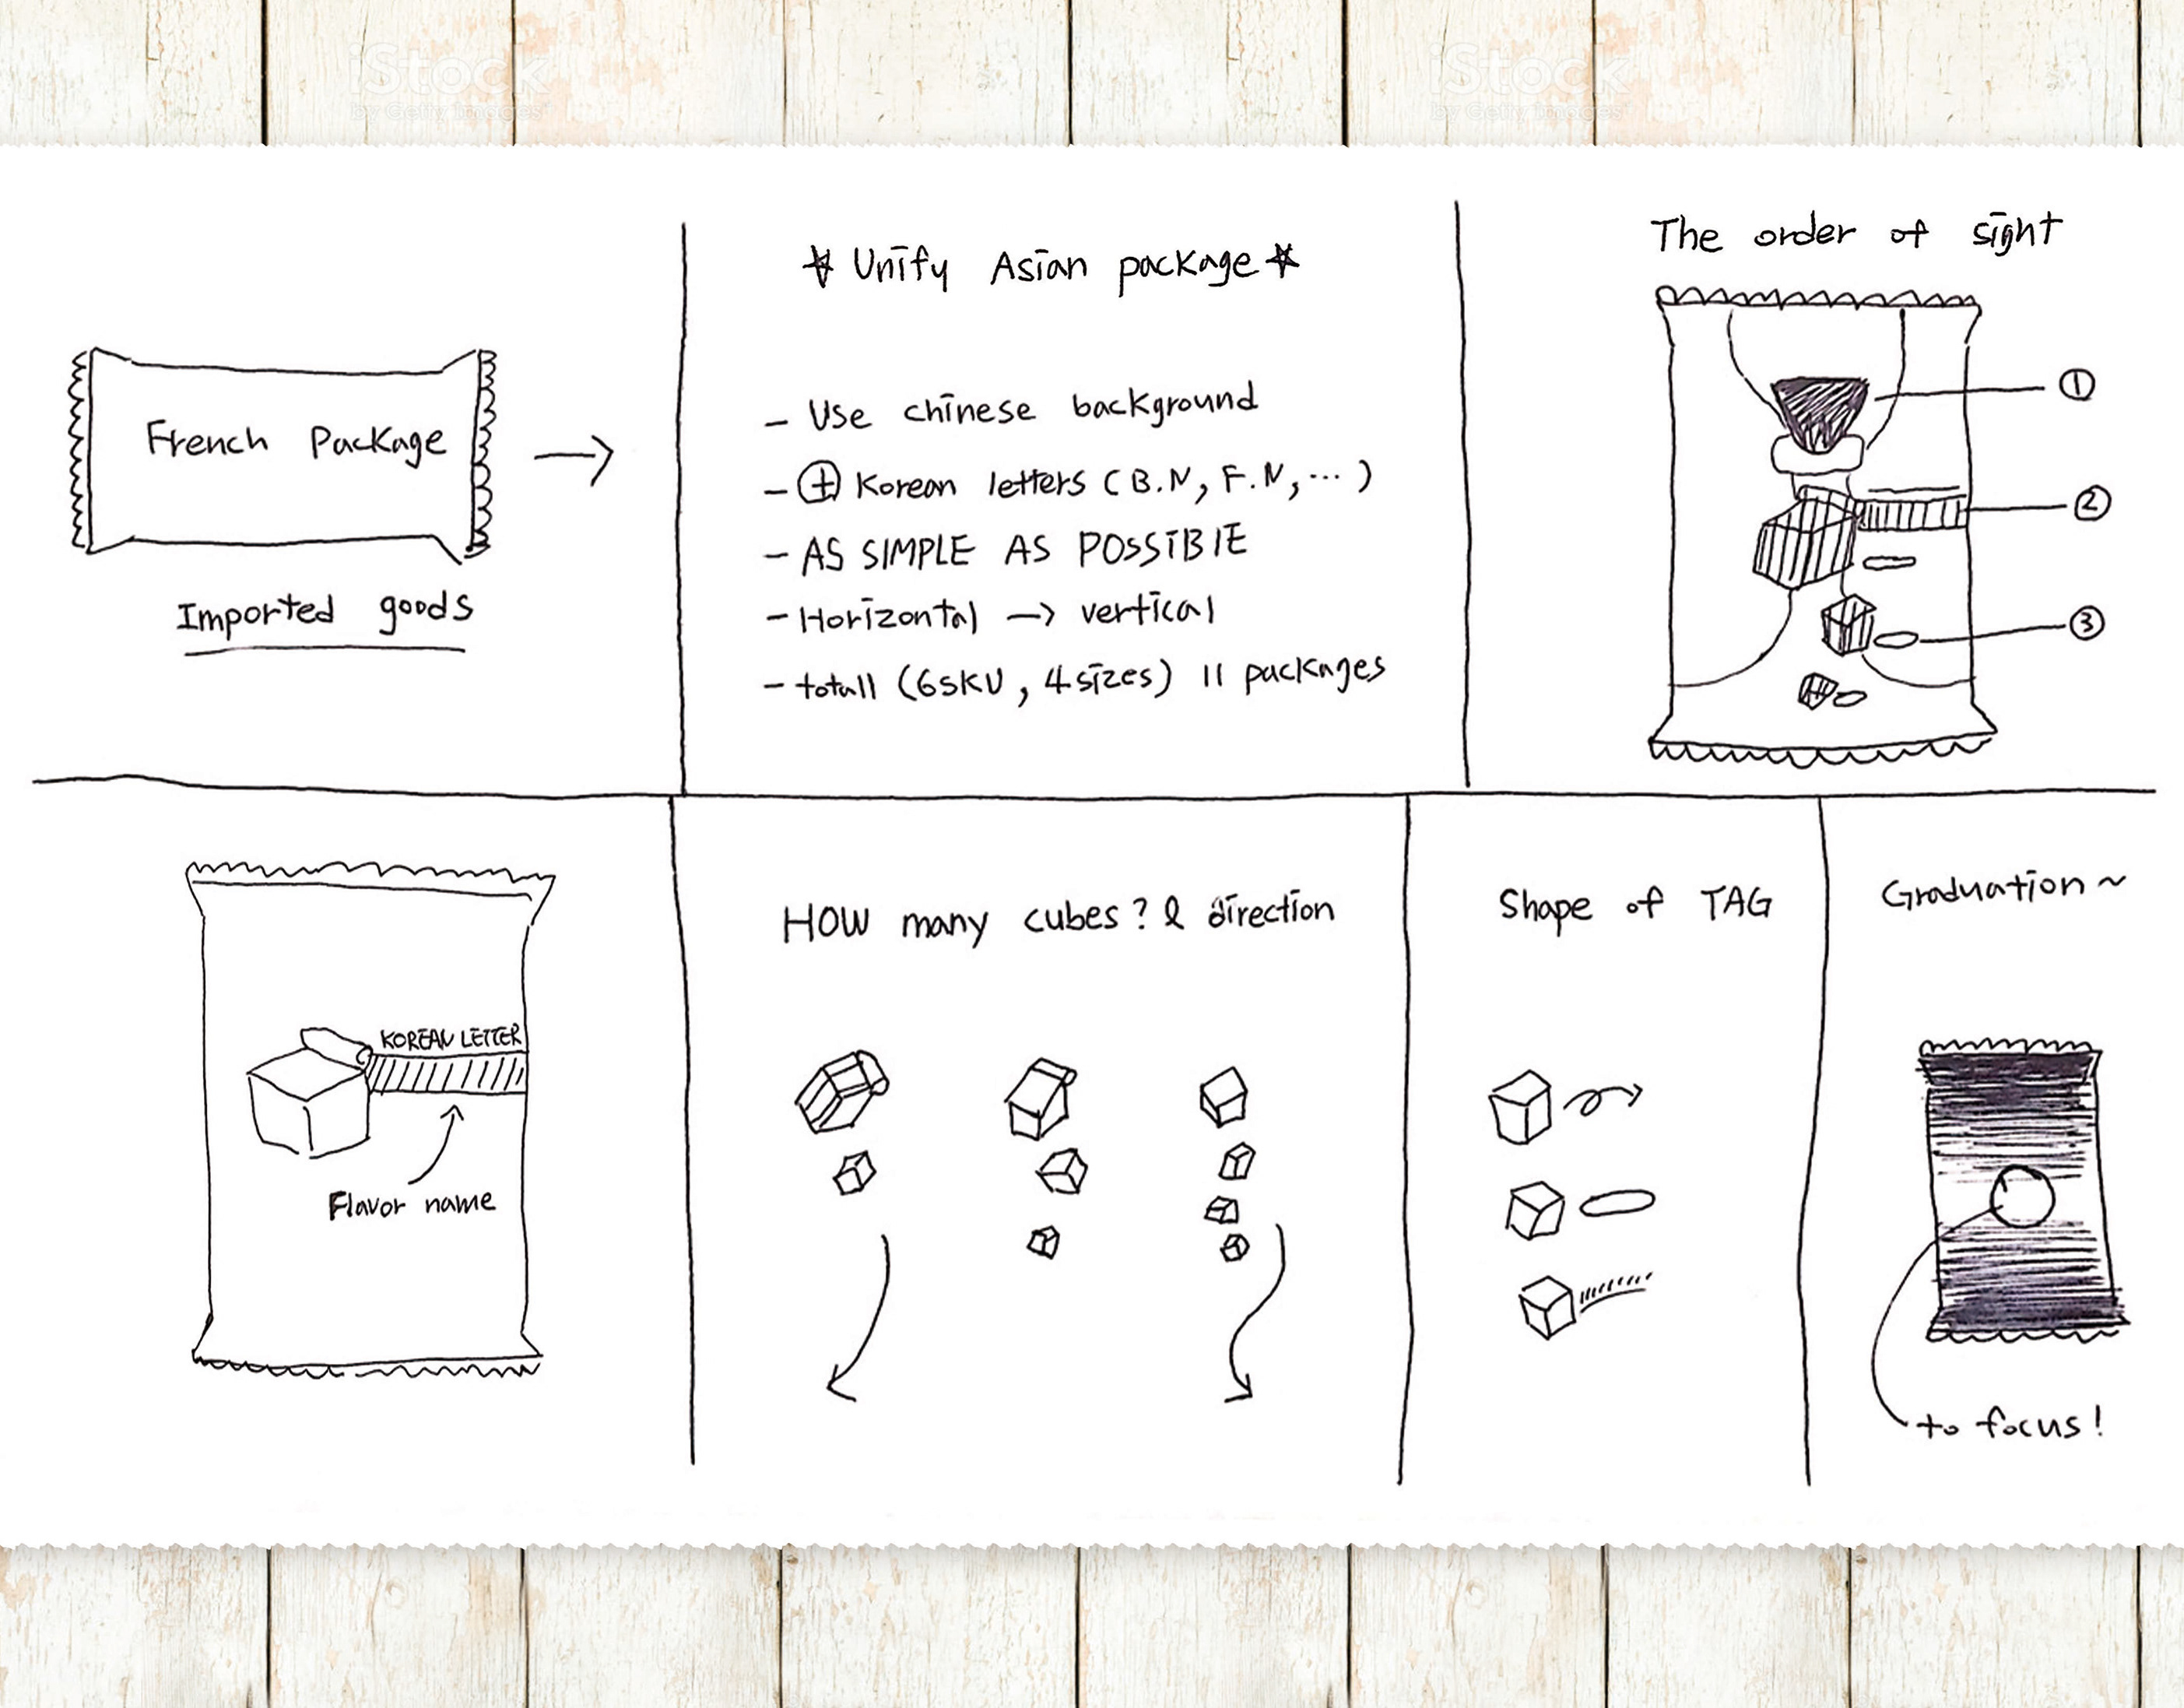 iStock
by Getty Images
iStock
by Getty Images
French Package
Imported goods
Unify Asian package
- Use chinese background
- + Korean letters (B.N, F.N, ...)
- AS SIMPLE AS POSSIBlE
- Horizontal → vertical
- totall (6SKU, 4sizes) 11 packages
The order of sight
①
②
③
KOREAN LETTER
Flavor name
HOW many cubes? & direction
Shape of TAG
Graduation ~
to focus!